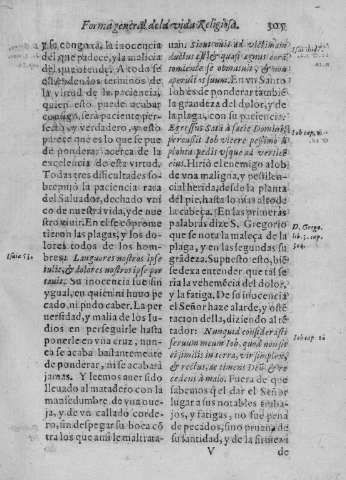 Forma general de la vida Religiosa. 305
y su congoxa, la inocencia
del que padece, y la malicia
del que ofende. A toda se
estiende
la virtud de la paciencia,
quien esto puede acabar
consigo, será paciente perfecto
y verdadero, y esto
parece que es lo que se puede
ponderar acerca de la
excelencia de esta virtud.
Todas tres dificultades sobrepujó
la paciencia rara
del Salvador, dechado vnico
de nuestra vida, y de nuestro
viuir. En el se exprimentaron
las plagas, y los dolores
todos de los hombres:
Isaiæ 53. Languores nostros ipse
tulit, & dolores nostros ipse portauit.
Su inocencia fue sin
ygual, en quien ni huuo pecado,
ni pudo caber. La peruersidad,
y malia de los Iudios
en perseguirle hasta
ponerle en vna cruz, nunca
se acaba bastantemente
de ponderar, ni se acabará
jamas. Y leemos auer sido
lleuado al matadero con la
mansedumbre de vna oueja,
y de vn callado cordero,
sin despegar su boca cótra
los que ansi le maltrataua.
Sicut ouis ad victimam
ductus est, & quasi agnus coram
tondente se obmutuit, & non
aperuit os suum. En vn Santo
Iob es de ponderar tambié
la grandeza del dolor, y de
la plaga, con su paciencia:
Egressus Satã à facie Domini,
percussit Iob vlcere pessimo à
planta pedis vsque ad verticem
eius. Hirió el enemigo a Iob
de vna maligna, y pestilencial
herida, desde la planta
del pie, hasta lo mas alto de
la cabeça. En las primeras
palabras dize S. Gregorio
que se nota la maleça de la
plaga, y en las segundas su
grãdeza. Supuesto esto, bien
se dexa entender que tal seria
la vehemécia del dolor,
y la fatiga. De su inocencia
el Señor haze alarde, y ostentacion
della, diziendo al tétador:
Nunquid considerasti
seruum meum Iob, quod non sit
ei similis in terra, vir simplex,
& rectus, ac timens Deũ, & recedens
à malo. Fuera de que
sabemos q̃ el dar el Señor
lugar a sus notables trabajos,
y fatigas, no fue pena
de pecados, sino prueua de
su santidad, y de la
V de
D. Grego.